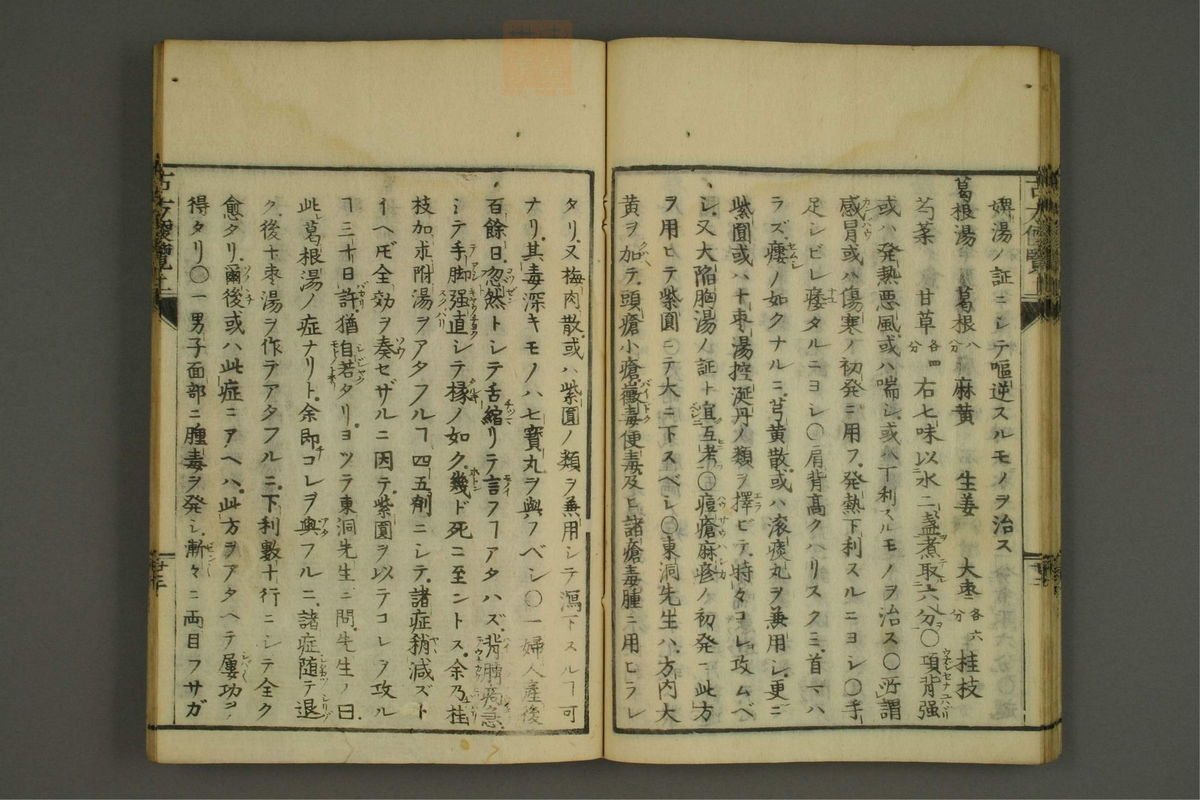 婢湯ノ証ニシテ嘔逆スルモノヲ治ス
葛根湯 葛根八 麻黄 生姜 大枣各六分 桂枝
芍薬 甘草各四分 右七味以水二盞煮取六分〇項背强
或ハ発熱悪風或ハ喘シ或ハ下利スルモノヲ治ス〇所謂
感冒或ハ傷寒ノ初発ニ用フ発熱下利スルニヨシ〇手
足シビレ痿タルニヨシ〇肩背髙クハリスクミ首マハ
ラズ㾱ノ如クナルニ芎黄散或ハ滚痰丸ヲ兼用シ更ニ
紫圓或ハ十枣湯控涎丹ノ類ヲ擇ビテ時々コレヲ攻ムベ
シ又大陥胸湯ノ証ト宜互考〇痘瘡麻疹ノ初発一此方
ヲ用ヒテ紫圓ニテ大ニ下スベシ〇東洞先生ハ方内大
黄ヲ加テ頭瘡小瘡黴毒便毒及ヒ諸瘡毒腫ニ用ヒラレ
タリ又梅肉散或ハ紫圓ノ類ヲ兼用シテ瀉下スルヿ可
ナリ其毒深キモノハ七寶丸ヲ與フベシ〇一婦人産後
百餘日忽然トシテ舌縮リテ言フヿアタハズ背髀痛急
ニテ手脚强直シテ椽ノ如ク幾ド死ニ至ントス余乃桂
枝加朮附湯ヲアタフルヿ四五劑ニシテ諸症稍減ズト
イヘ𪜈全効ヲ奏セザルニ因テ紫圓ヲ以テコレヲ攻ル
ヿ三十日許猶自若タリヨツテ東洞先生ニ問先生ノ曰
此葛根湯ノ症ナリト余即コレヲ與フルニ諸症随テ退
ク後十枣湯ヲ作テアタフルニ下利數十行ニシテ全ク
愈タリ爾後或ハ此症ニアヘハ此方ヲアタヘテ屢功ヲ
得タリ〇一男子面部ニ腫毒ヲ発シ漸々ニ両目フサガ